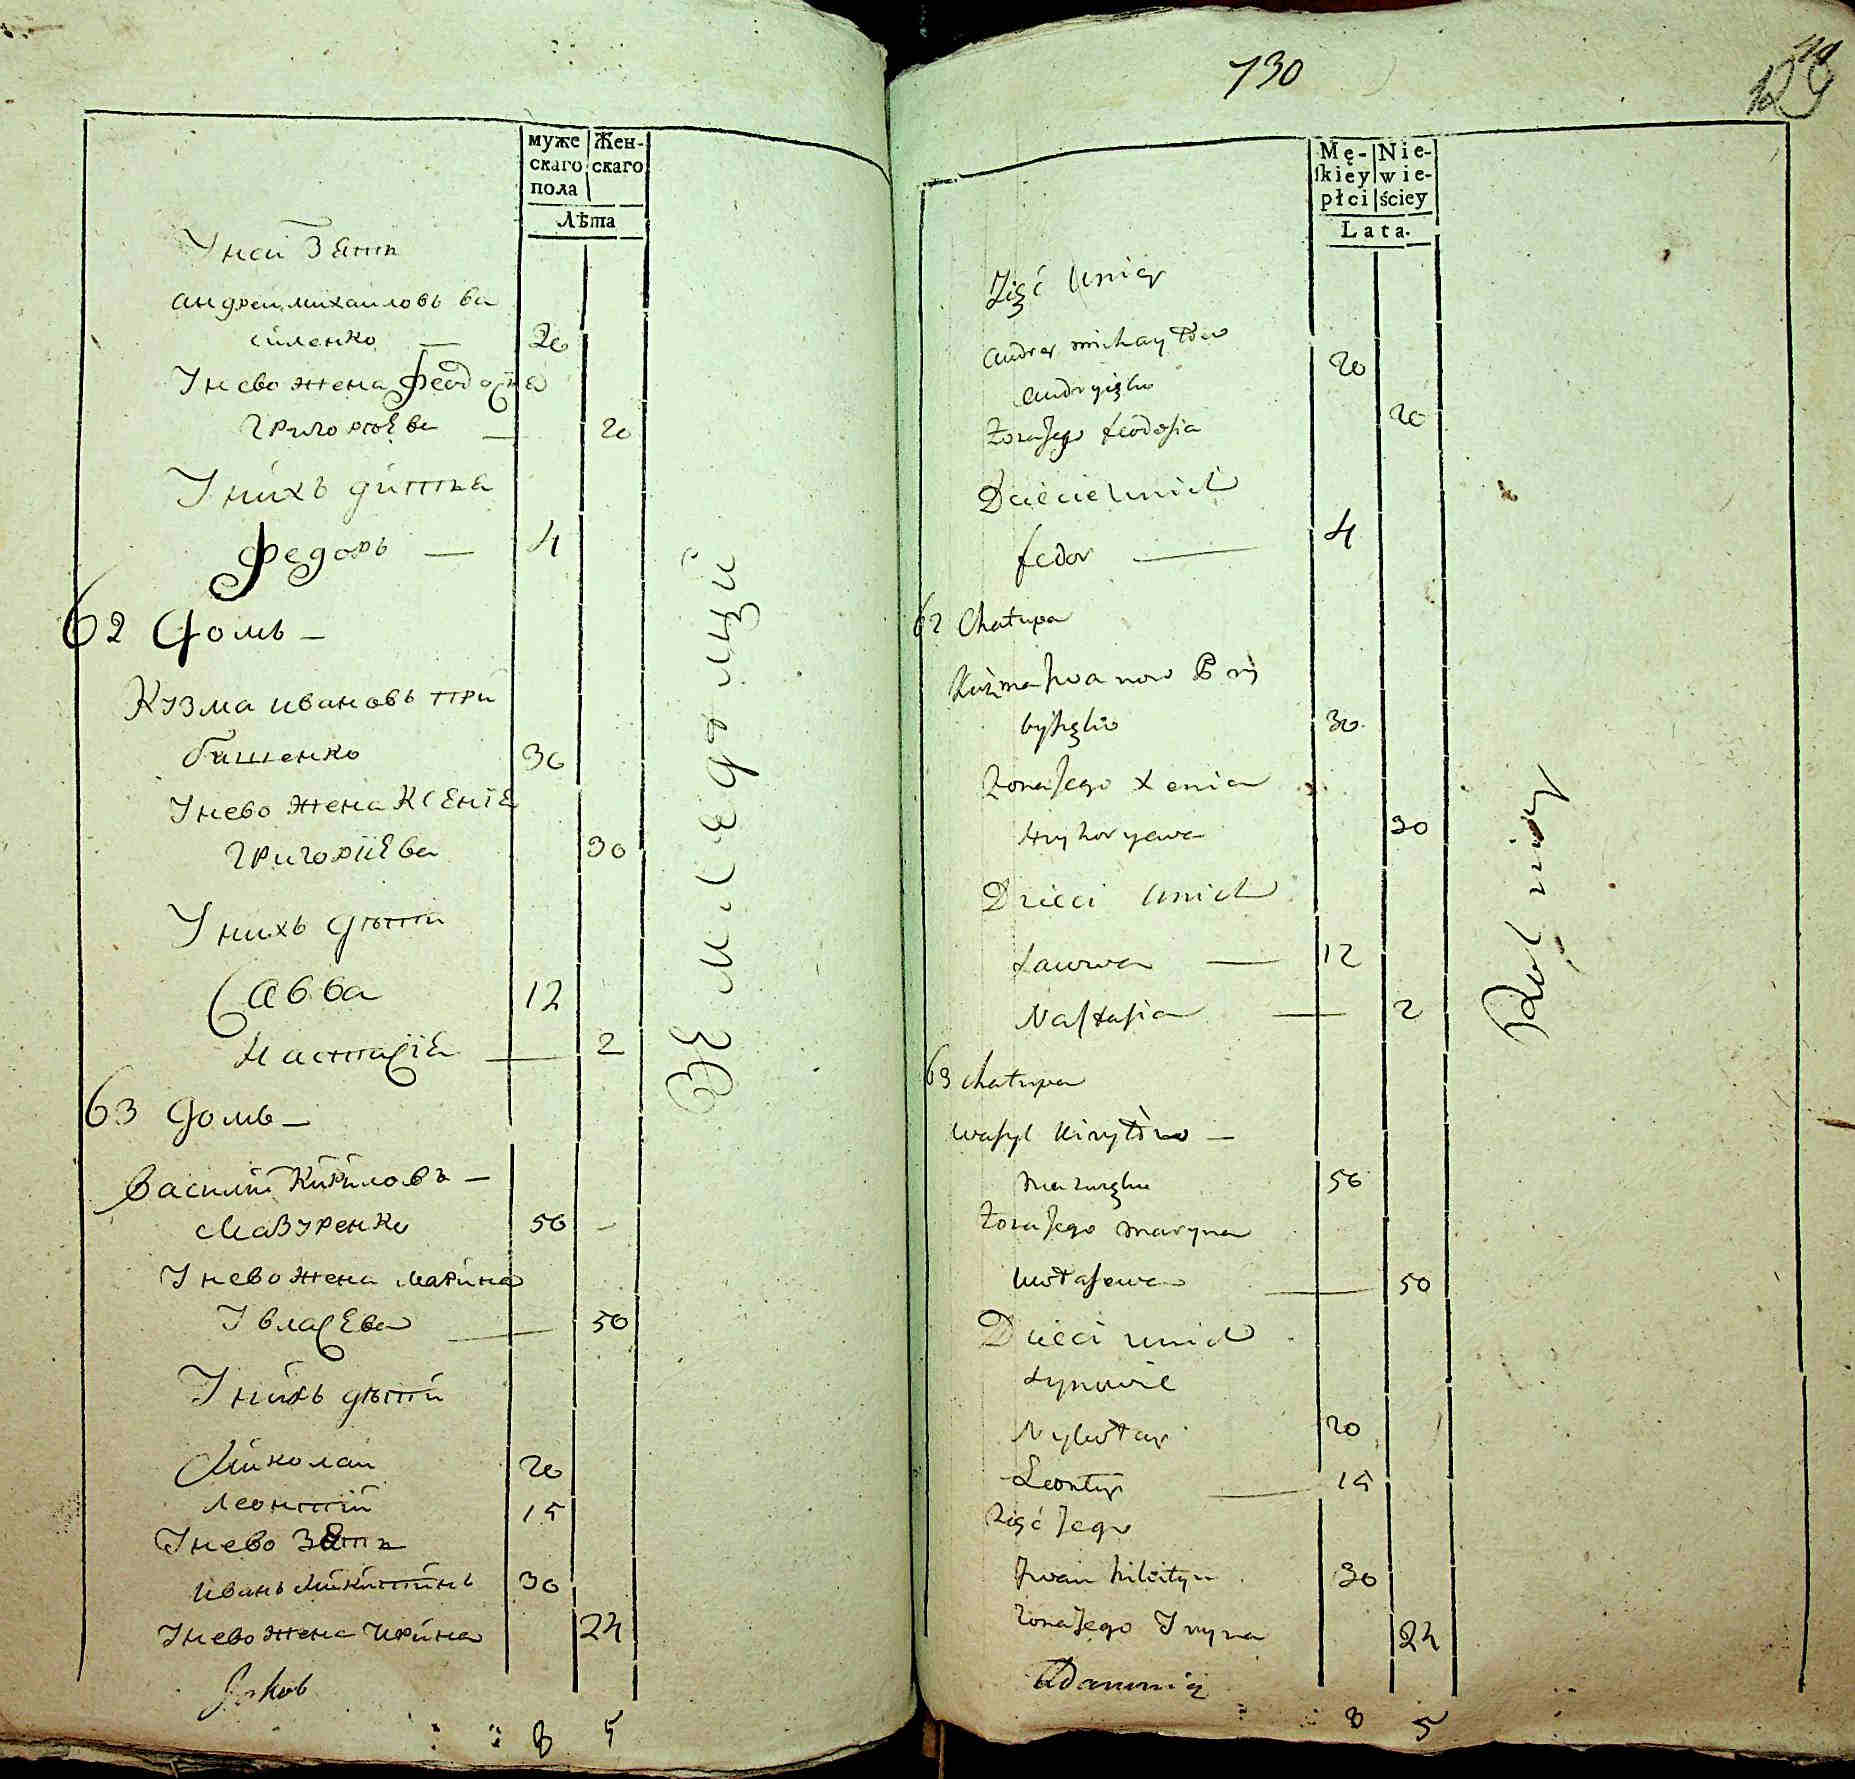 муже
скаго
пола
Жен-
скаго
Лѣта
У неи зять
андреи михаиловъ ва
силенко — 20
У нево жена феодосиа
григориева — 20
У нихъ дитка
федоръ — 4
62 домъ —
Кузма ивановъ при
бишенко 30
У нево жена ксения
григориева 30
У нихъ дѣти
Савва 12
Настасия — 2
63 домъ —
Василии Кириловъ —
Мазуренко 50 —
У нево жена марина
Увласева — 50
У нихъ дѣти
Николаи 20
леонтии 15
У нево зять
иванъ Никитинъ 30
У нево жена ирина 24
Jakob
8 5
Земледѣлцй
730
129
Mę-
skiey
płci
Nie-
wie-
ściey
Lata.
Zięć Uniey
Andrey michayłow
Andryięko 20
Żona Jego Feodosia 20
Dziecie Unich
fedor — 4
62 Chałupa
Kuźma Jwanow Pry
byszęko 30
Żona Jego Xenia
Hryhoryewa 30
Dzieci Unich
Sawwa — 12
Nastasia — 2
63 chałupa
Wasyl Kiryłow —
Mazuręko 50
Żona Jego Maryna
Uwłasewa — 50
Dzieci unich
Synowie
Nykołay 20
Leontiy — 15
Zięć Jego
Jwan Nikityn 30
Żona Jego Iryna 24
Adamowicz
8 5
Rolnicy